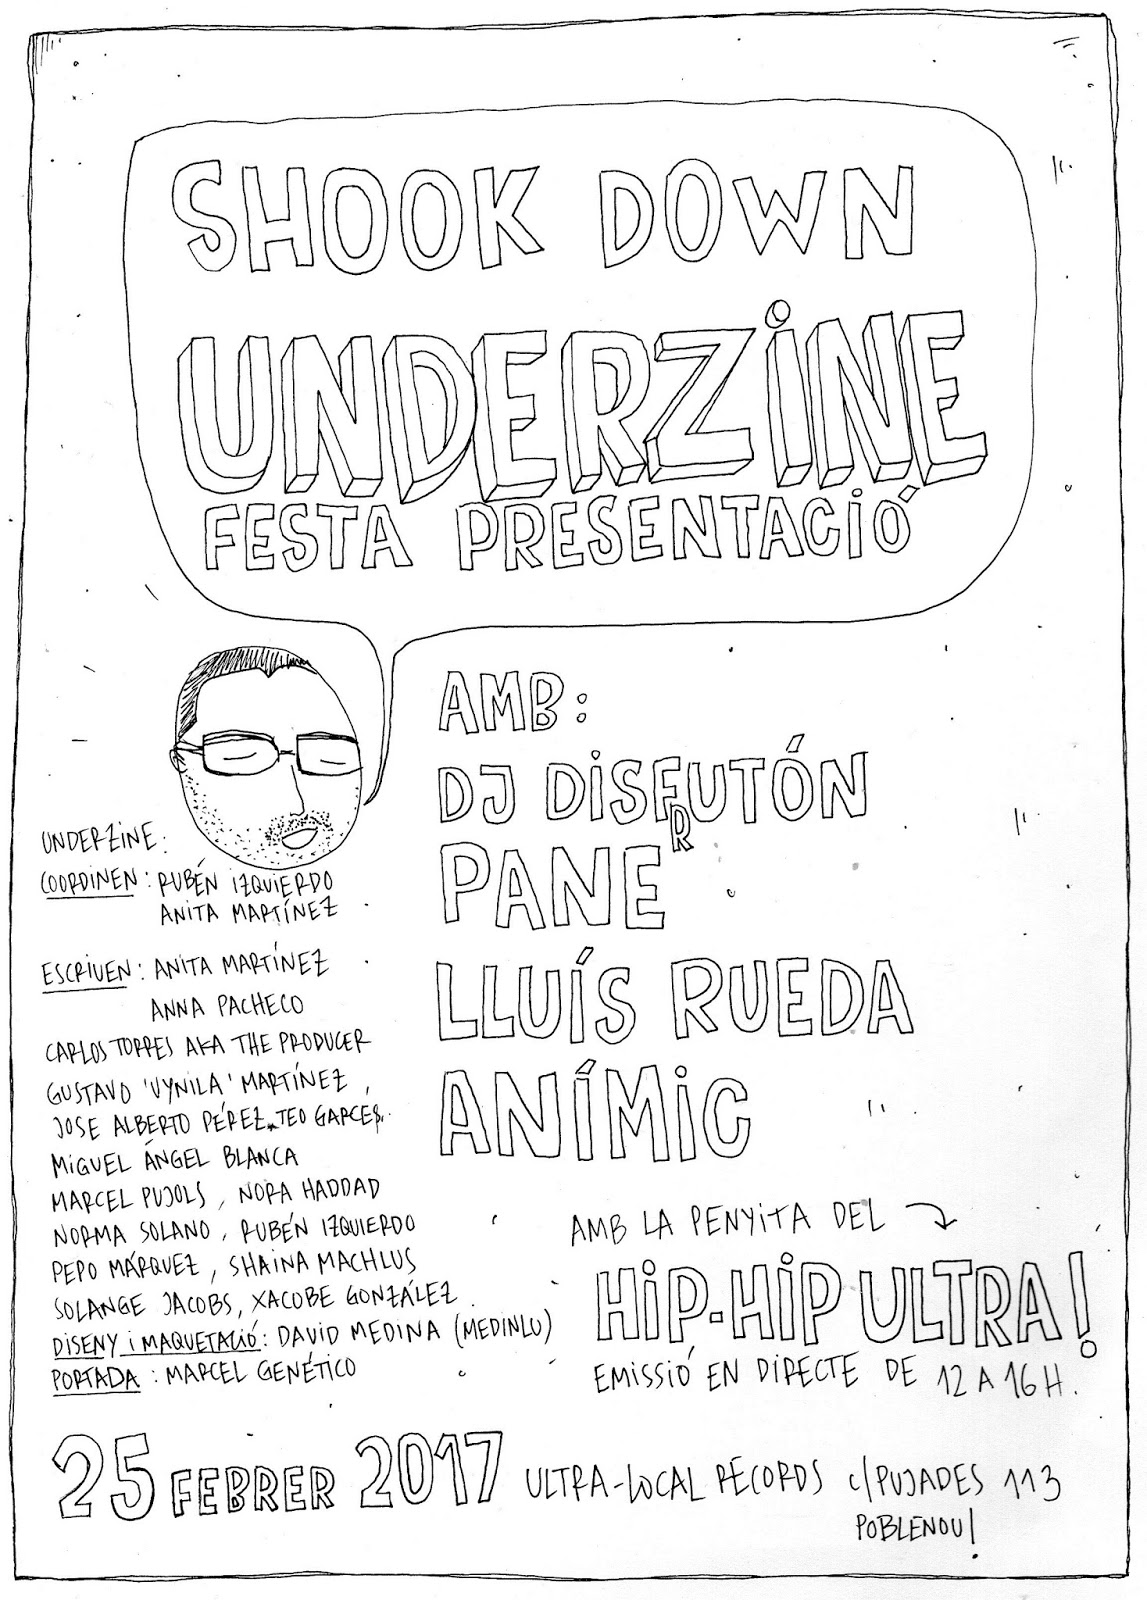 SHOOK DOWN
UNDERZINE
FESTA PRESENTACIÓ
AMB:
DJ DISFRUTÓN
PANE
LLUÍS RUEDA
ANÍMIC
AMB LA PENYITA DEL
HIP-HIP ULTRA!
EMISSIÓ EN DIRECTE DE 12 A 16H.
UNDERZINE:
COORDINEN: RUBÉN IZQUIERDO
ANITA MARTÍNEZ.
ESCRIUEN: ANITA MARTÍNEZ.
ANNA PACHECO
CARLOS TORRES AKA THE PRODUCER
GUSTAVO 'VYNILA' MARTÍNEZ,
JOSE ALBERTO PÉREZ, TEO GARCÉS,
MIGUEL ÁNGEL BLANCA
MARCEL PUJOLS, NORA HADDAD
NORMA SOLANO, RUBÉN IZQUIERDO
PEPO MÁRQUEZ, SHAINA MACHLUS
SOLANGE JACOBS, XACOBE GONZÁLEZ.
DISENY I MAQUETACIÓ: DAVID MEDINA (MEDINLU)
PORTADA: MARCEL GENÉTICO
25 FEBRER 2017 ULTRA-LOCAL RECORDS c/PUJADES 113
POBLENOU!